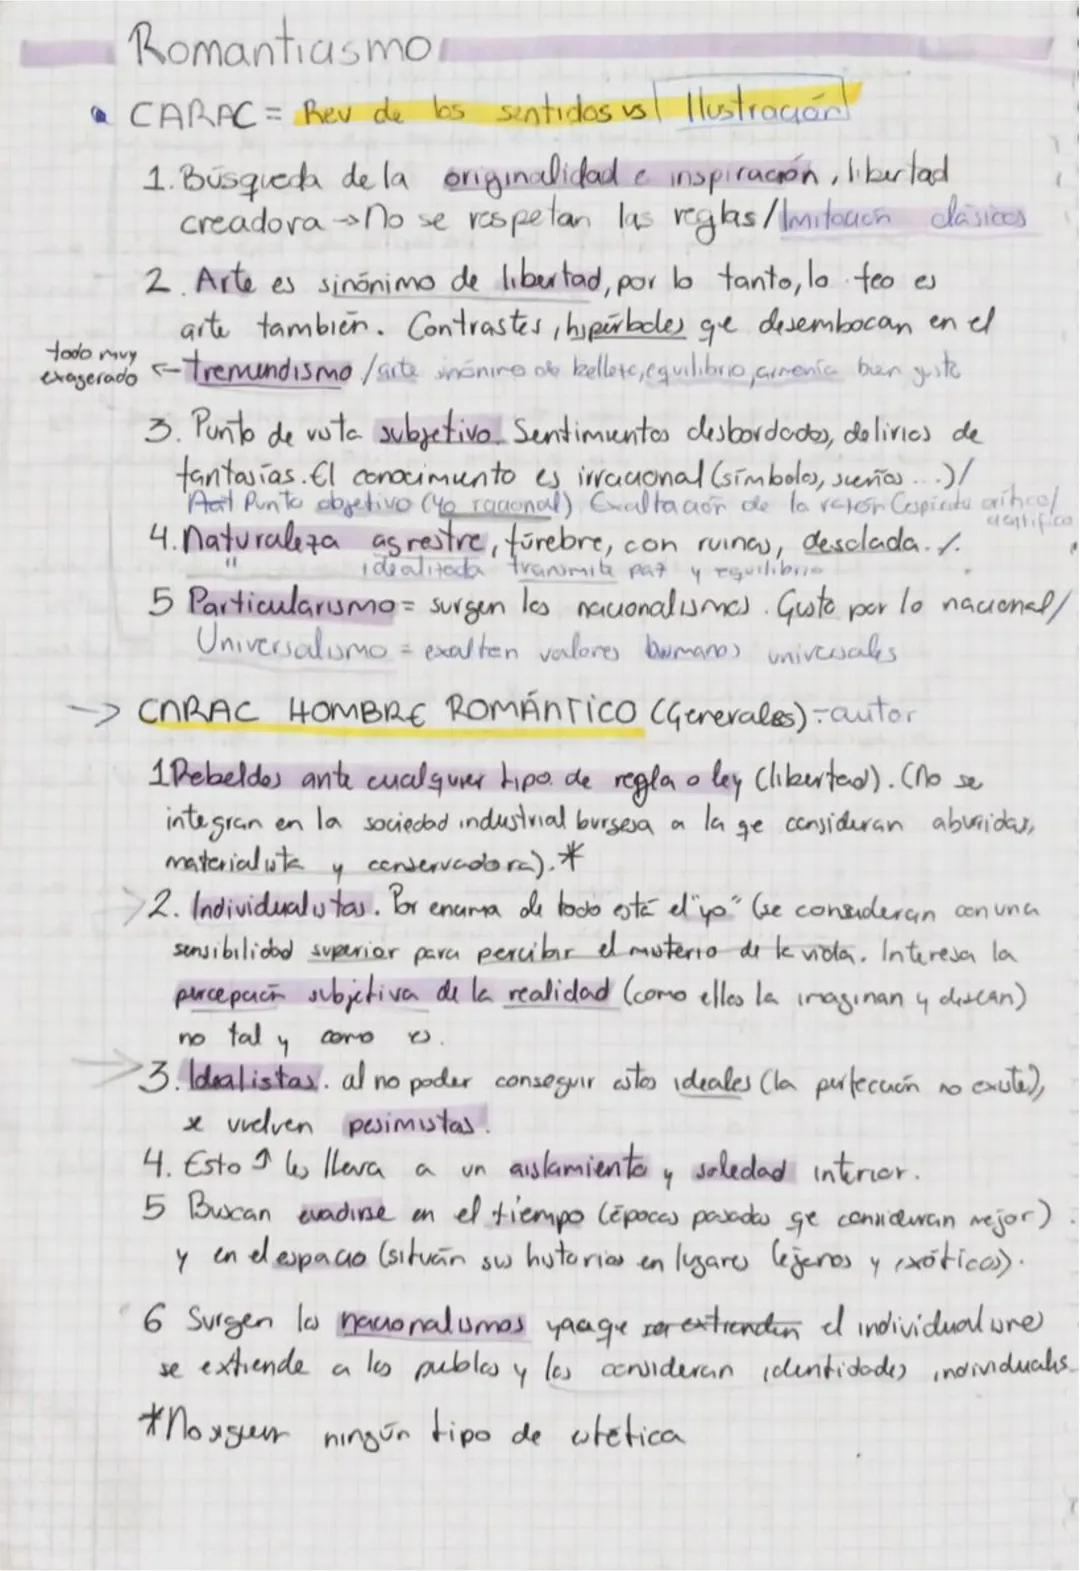 Romanticismo
• CARAC = Rev de los sentidos vs Ilustración
1. Búsqueda de la originalidad e inspiración, libertad
creadora → No se respetan las reglas/Imitación clásicos
2. Arte es sinónimo de libertad, por lo tanto, lo feo es
arte también. Contrastes, hipérboles qe desembocan en el
todo muy
exagerado ← Tremendismo /arte sinónimo de belleza, equilibrio, armonía buen gusto
3. Punto de vista subjetivo. Sentimientos desbordados, delirios de
fantasías. El conocimiento es irracional (símbolos, sueños ...)/
Punto objetivo (yo racional). Exaltación de la razón (espíritu crítico/
científico
4. Naturaleza agreste, fúnebre, con ruinas, desolada. /.
" idealizada transmite paz y equilibrio
5 Particularismo = surgen los nacionalismos. Gusto por lo nacional/
Universalismo = exalten valores humanos universales
→ CARAC HOMBRE ROMÁNTICO (Generales) - autor
1 Rebeldes ante cualquier tipo de regla o ley (libertad). (No se
integran en la sociedad industrial burgesa a la qe consideran aburridas,
materialista y conservadora). *
2. Individualistas. Por encima de todo está el "yo" (se consideran con una
sensibilidad superior para percibir el misterio de la vida. Interesa la
percepción subjetiva de la realidad (como ellos la imaginan y desean)
no tal y como es.
3. Idealistas. al no poder conseguir estos ideales (la perfección no existe),
se vuelven pesimistas.
4. Esto ↑ les lleva a un aislamiento y soledad interior.
5 Buscan evadirse en el tiempo (épocas pasadas qe consideran mejor).
y en el espacio (sitúan sus historias en lugares lejanos y exóticos).
6 Surgen los nacionalismos ya qe extienden el individualismo
se extiende a los pueblos y los consideran identidades individuales
* No siguen ningún tipo de estética